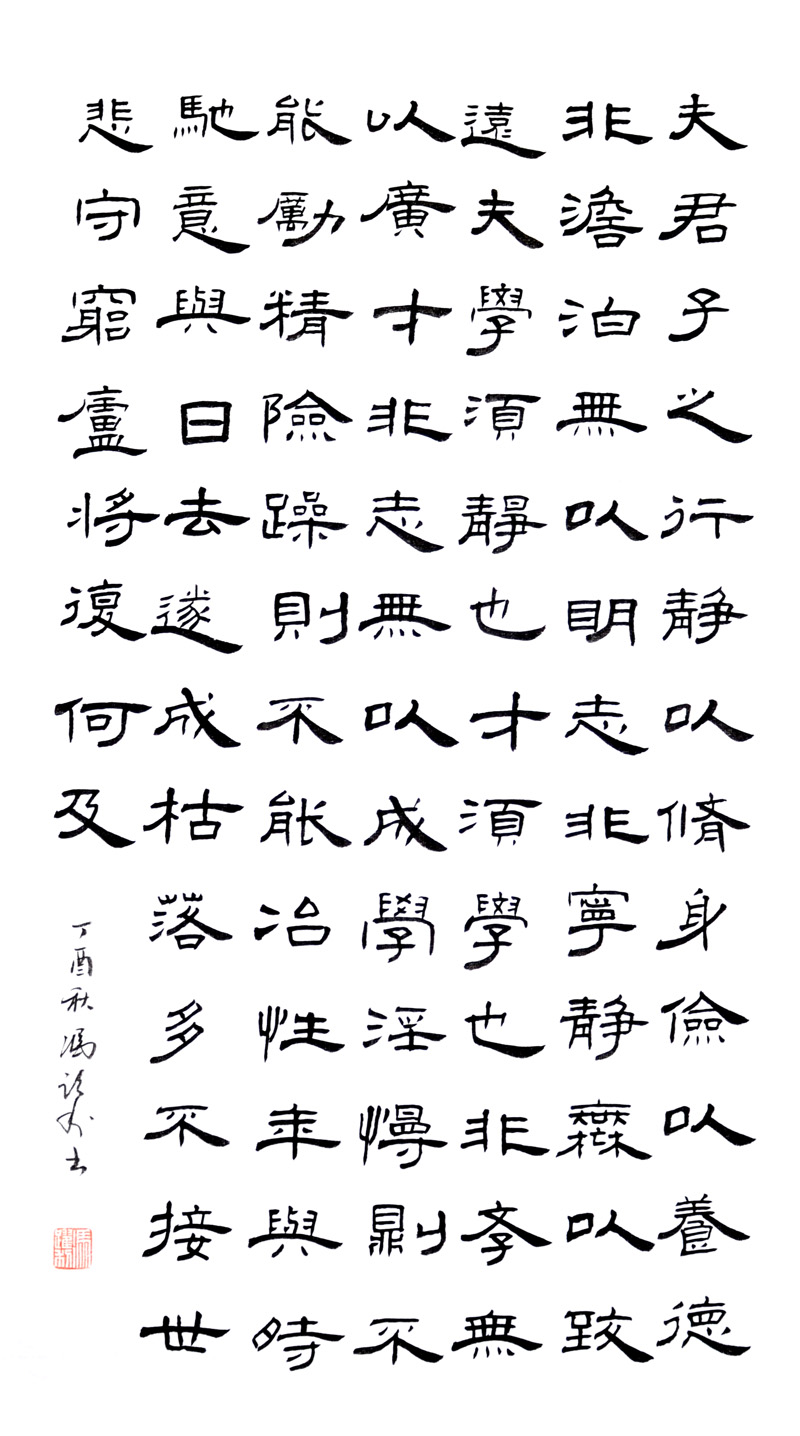 夫君子之行静以脩身儉以養德
非澹泊無以明志非寧静無以致
遠夫學須靜也才須學也非斈無
以廣才非志無以成學淫慢則不
能勵精險躁則不能冶性年與時
馳意與日去遂成枯落多不接世
悲守窮廬將復何及
丁酉秋冯书